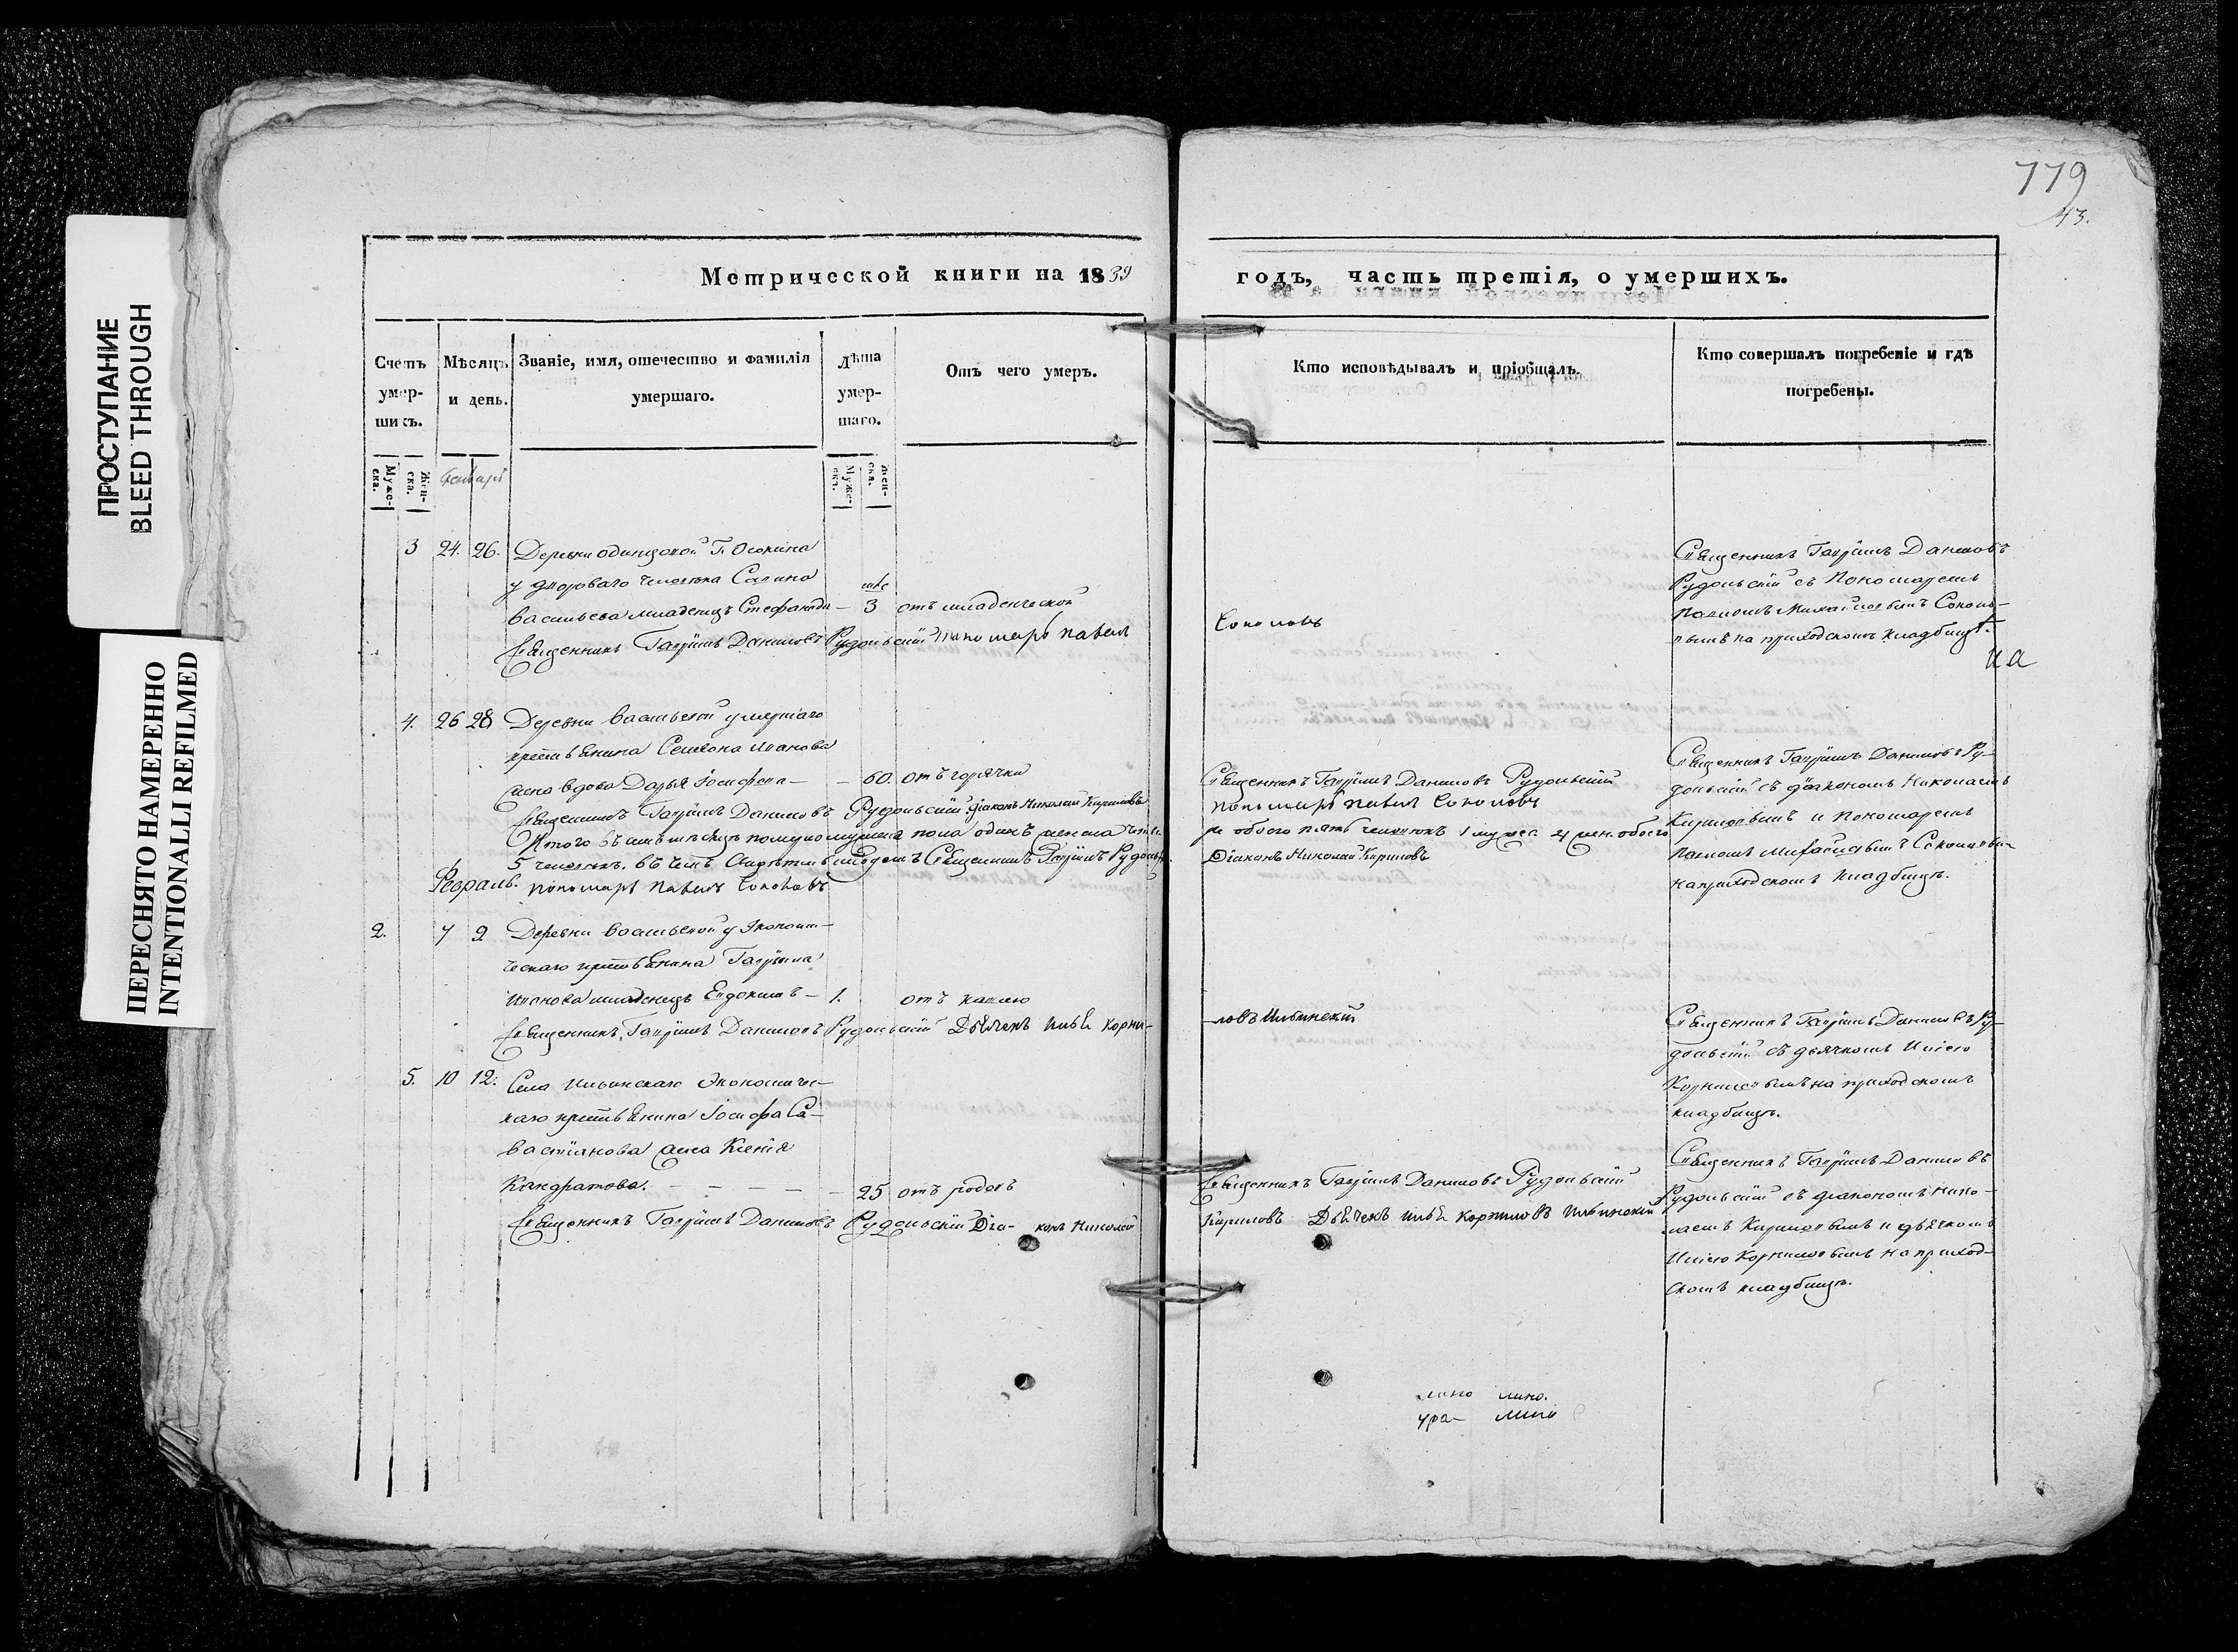 779
43.
ПРОСТУПАНИЕ
BLEED THROUGH
ПЕРЕСНЯТО НАМЕРЕННО
INTENTIONALLI REFILMED
Метрической книги на 1839
годъ, часть третія, о умершихъ.
Счетъ умер-шихъ.
Мѣсяцъ и день.
Званіе, имя, отечество и фамилія умершаго.
Лѣта умер-шаго.
Отъ чего умеръ.
Кто исповѣдывалъ и пріобщалъ.
Кто совершалъ погребеніе и гдѣ погребены.
Муже-ска.
Жен-ска.
Муже-ска.
Жен-ска.
3 24. 26. Деревни Одинцовой Г. Осокина
у двороваго человѣка Савина
Васильева младенецъ Стефанида — 3 отъ младенческой
Священникъ Гавріилъ Даниловъ Рудольскій Пономарь Павелъ
Соколовъ
Священникъ Гавріилъ Даниловъ
Рудольскій съ Пономаремъ
Павломъ Михайловымъ Соколо-
вымъ на приходскомъ кладбищѣ.
на
4. 26 28 Деревни Васильевой умершаго
крестьянина Симеона Иванова
жена вдова Дарья Іосифова — 60. отъ горячки
Священникъ Гавріилъ Даниловъ Рудольскій діаконъ Николай Кириловъ
5 человѣкъ. въ чемъ свидѣтельствуемъ Священникъ Гавріилъ Рудольскій
Пономарь Павелъ Соколовъ
Священникъ Гавріилъ Даниловъ Рудольскій
Пономарь Павелъ Соколовъ
обоего пять человѣкъ 1 мужеска 4 жен. обоего
Діаконъ Николай Кириловъ
Священникъ Гавріилъ Даниловъ Ру-
дольскій съ діакономъ Николаемъ
Кириловымъ и Пономаремъ
Павломъ Михайловымъ Соколовымъ
на приходскомъ кладбищѣ.
Феврал.
2. 7 9 Деревни Васильевой у Экономи-
ческаго крестьянина Гавріила
Иванова младенецъ Евдокимъ — 1. отъ кашлю
Священникъ Гавріилъ Даниловъ Рудольскій Дьячекъ Илья Корни-
ловъ Ильинскій
Священникъ Гавріилъ Даниловъ Ру-
дольскій съ дьячкомъ Ильею
Корниловымъ на приходскомъ
кладбищѣ.
5. 10 12. Села Ильинскаго Экономичес-
каго крестьянина Іосифа Са-
вастіанова жена Ксенія
Кандратова. — — — — 25 отъ родовъ
Священникъ Гавріилъ Даниловъ Рудольскій Діа- конъ Николай
Священникъ Гавріилъ Даниловъ Рудольскій
Кириловъ Дьячекъ Илья Корниловъ Ильинскій
Священникъ Гавріилъ Даниловъ
Рудольскій съ діакономъ Нико-
лаемъ Кириловымъ и дьячкомъ
Ильею Корниловымъ на приход-
скомъ кладбищѣ.